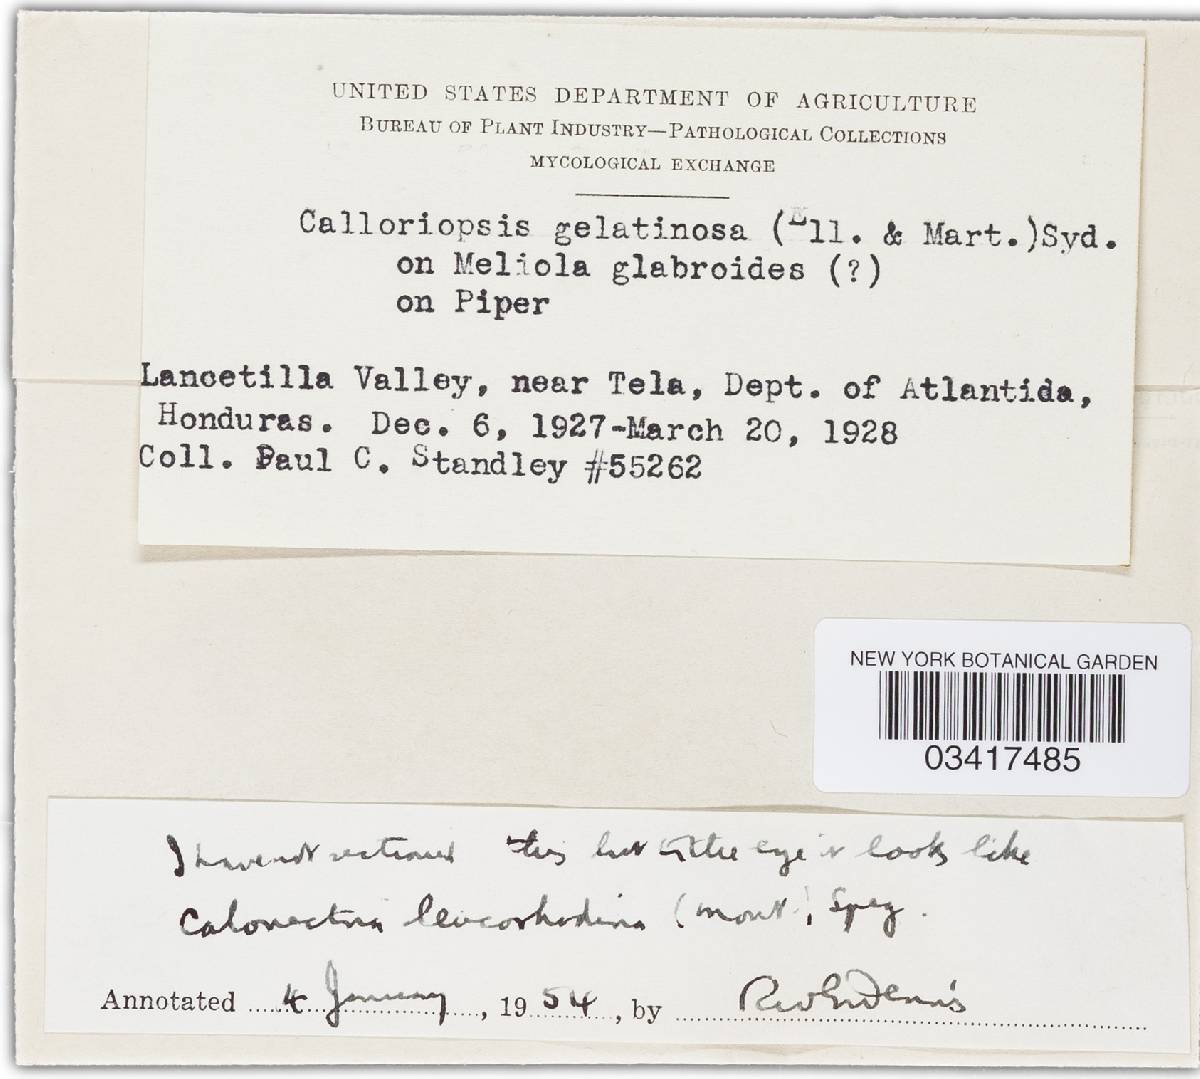 UNITED STATES DEPARTMENT OF AGRICULTURE
BUREAU OF PLANT INDUSTRY—PATHOLOGICAL COLLECTIONS
MYCOLOGICAL EXCHANGE
Calloriopsis gelatinosa (Ell. & Mart.)Syd.
on Meliola glabroides (?)
on Piper
Lancetilla Valley, near Tela, Dept. of Atlantida,
Honduras. Dec. 6, 1927-March 20, 1928
Coll. Paul C. Standley #55262
NEW YORK BOTANICAL GARDEN
03417485
I have not sectioned this but to the eye it looks like
Calonectria leucorhodina (Mont.) Speg.
Annotated 4 January, 1954, by RWGDennis